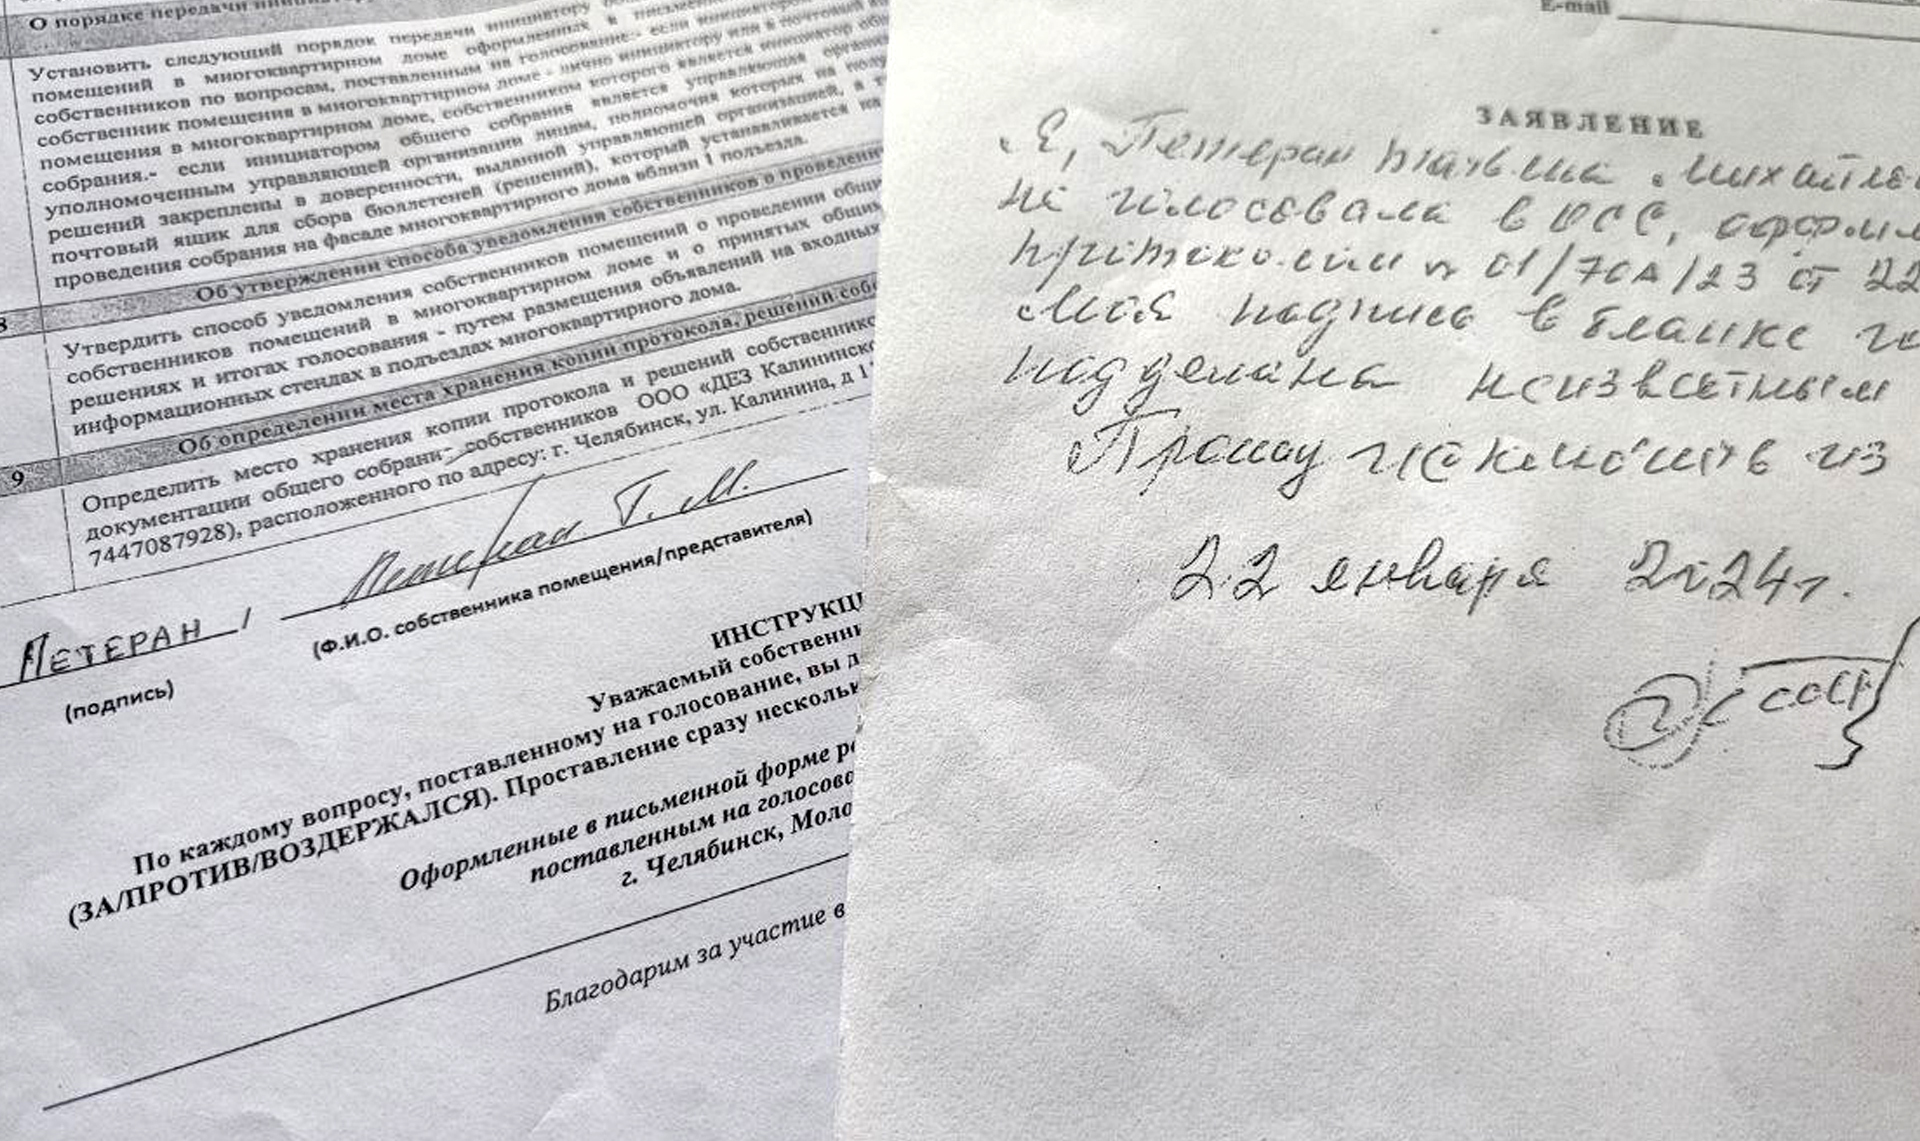 О порядке передачи
Установить следующий порядок передачи инициатору
помещений в многоквартирном доме оформленных в
собственников по вопросам, поставленным на голосование:- если
собственник помещения в многоквартирном доме - лично инициатору или в почтовый
помещения в многоквартирном доме, собственником которого является инициатор
собрания.- если инициатором общего собрания является управляющая
уполномоченным управляющей организации лицам, полномочия которых на
решений закреплены в доверенности, выданной управляющей организацией, в
почтовый ящик для сбора бюллетеней (решений), который устанавливается на
проведения собрания на фасаде многоквартирного дома вблизи 1 подъезда.
8
Об утверждении способа уведомления собственников о проведени
Утвердить способ уведомления собственников помещений о проведении общи
собственников помещений в многоквартирном доме и о принятых общи
решениях и итогах голосования - путем размещения объявлений на входных
информационных стендах в подъездах многоквартирного дома.
9
Об определении места хранения копии протокола, решений соб
Определить место хранения копии протокола и решений собственник
документации общего собрани- собственников ООО «ДЕЗ Калининско
7447087928), расположенного по адресу: г. Челябинск, ул. Калинина, д 1
ПЕТЕРАН / Петеран Г. М.
(подпись) (Ф.И.О. собственника помещения/представителя)
ИНСТРУКЦИ
Уважаемый собственни
По каждому вопросу, поставленному на голосование, вы д
(ЗА/ПРОТИВ/ВОЗДЕРЖАЛСЯ). Проставление сразу нескольк
Оформленные в письменной форме ре
поставленным на голосова
г. Челябинск, Моло
Благодарим за участие в
E-mail
ЗАЯВЛЕНИЕ
Я, Петеран Михайло
не голосовала в ОСС, оформл
протоколом № 01/70А/23 от 22
Моя подпись в бланке го
подделана неизвестным
Прошу исключить из
22 января 2024г.